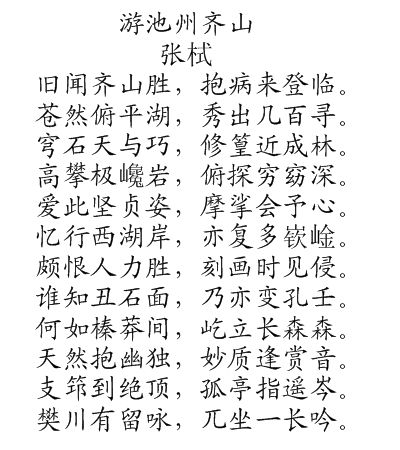 游池州齐山
张栻
旧闻齐山胜，抱病来登临。
苍然俯平湖，秀出几百寻。
穹石天与巧，修篁近成林。
高攀极巉岩，俯探穷窈深。
爱此坚贞姿，摩挲会予心。
忆行西湖岸，亦复多嵚崟。
颇恨人力胜，刻画时见侵。
谁知丑石面，乃亦变孔壬。
何如榛莽间，屹立长森森。
天然抱幽独，妙质逢赏音。
支筇到绝顶，孤亭指遥岑。
樊川有留咏，兀坐一长吟。